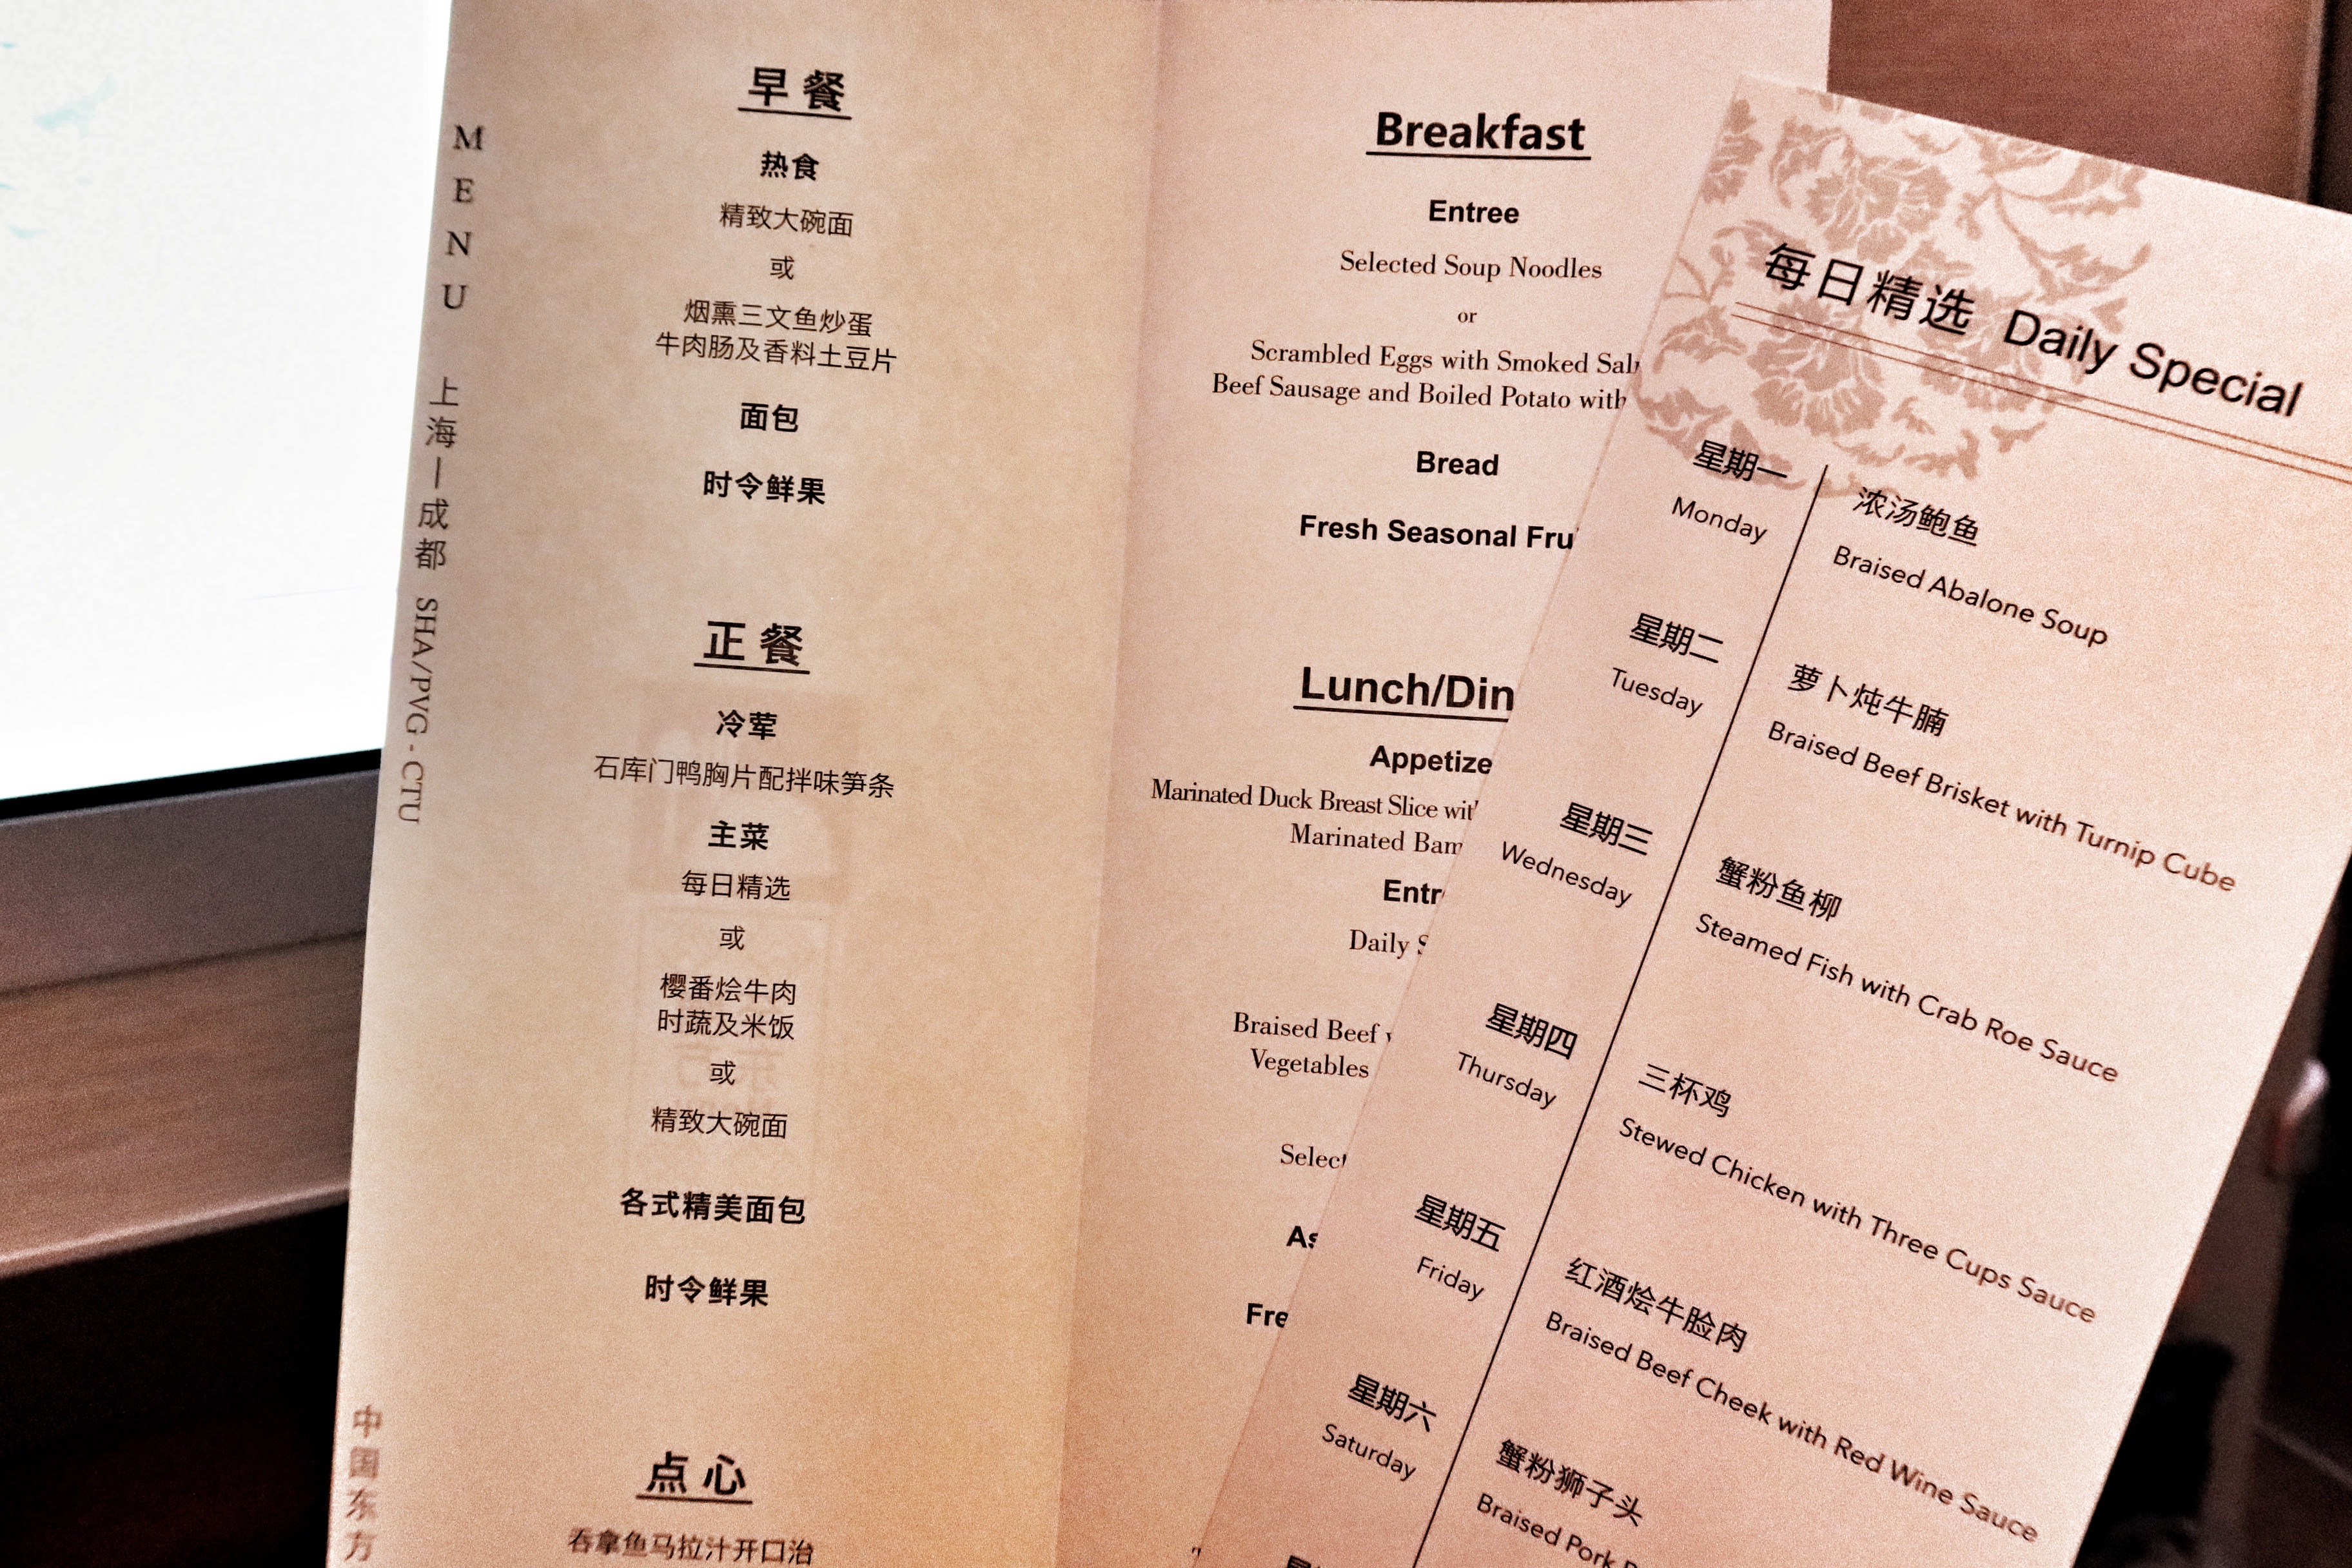 MENU 上海—成都 SHA/PVG - CTU
中国东方
早餐
热食
精致大碗面
或
烟熏三文鱼炒蛋
牛肉肠及香料土豆片
面包
时令鲜果
正餐
冷荤
石库门鸭胸片配拌味笋条
主菜
每日精选
或
樱番烩牛肉
时蔬及米饭
或
精致大碗面
各式精美面包
时令鲜果
点心
吞拿鱼马拉汁开口治
Breakfast
Entree
Selected Soup Noodles
or
Scrambled Eggs with Smoked Sal
Beef Sausage and Boiled Potato with
Bread
Fresh Seasonal Fru
Lunch/Din
Appetize
Marinated Duck Breast Slice wit
Marinated Bam
Entr
Daily S
Braised Beef
Vegetables
Selec
As
Fre
每日精选 Daily Special
星期一
Monday
浓汤鲍鱼
Braised Abalone Soup
星期二
Tuesday
萝卜炖牛腩
Braised Beef Brisket with Turnip Cube
星期三
Wednesday
蟹粉鱼柳
Steamed Fish with Crab Roe Sauce
星期四
Thursday
三杯鸡
Stewed Chicken with Three Cups Sauce
星期五
Friday
红酒烩牛脸肉
Braised Beef Cheek with Red Wine Sauce
星期六
Saturday
蟹粉狮子头
Braised Pork